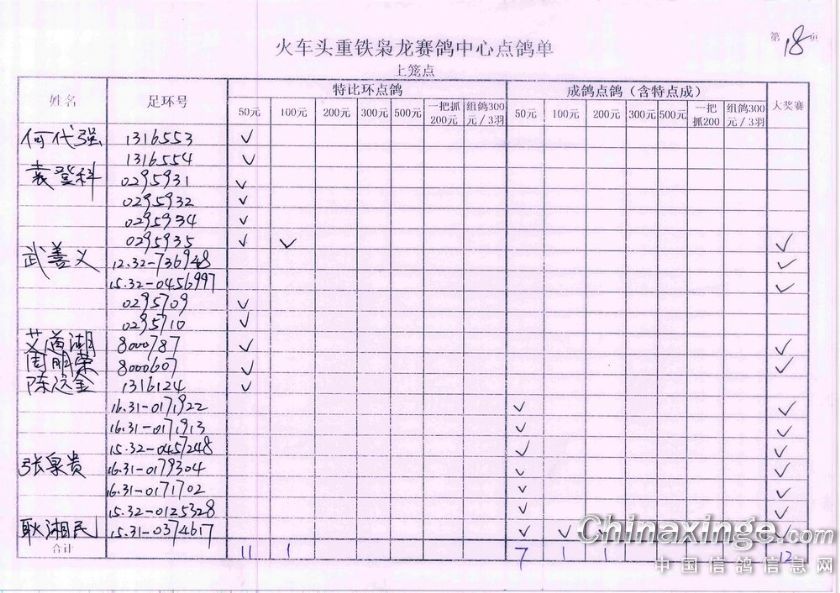 第 18 页
火车头重铁枭龙赛鸽中心点鸽单
上笼点
姓名 足环号 特比环点鸽 成鸽点鸽（含特点成） 大奖赛
50元 100元 200元 300元 500元 一把抓200元 组鸽300元/3羽 50元 100元 200元 300元 500元 一把抓200 组鸽300元/3羽
何代强 1316553 ✓
1316554 ✓
袁登科 0295931 ✓
0295932 ✓
0295934 ✓
0295935 ✓ ✓ ✓
武善义 12.32-736948 ✓
15.32-0456997 ✓
0295709 ✓
0295710 ✓
艾道湘 8000787 ✓ ✓
周朋荣 8000607 ✓ ✓
陈运金 1316124 ✓
16.31-0171922 ✓ ✓
16.31-0171913 ✓ ✓
15.32-0457248 ✓ ✓
张泉贵 16.31-0179304 ✓ ✓
16.31-0171702 ✓ ✓
15.32-0125328 ✓ ✓
耿湘民 15.31-0374617 ✓ ✓
合计 11 1 7 1 1 12
Chinaxinge.com
中国信鸽信息网